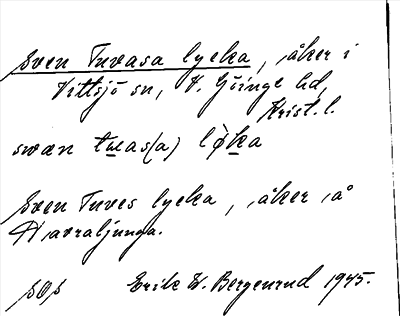 Sven Tuvasa lycka, åker i
Vittsjö sn, V. Göinge hd,
Krist. l.
swæn tɯas(a) lø̀ka
Sven Tuves lycka, åker å
Havraljunga.
Erik W. Bergenrud 1945.